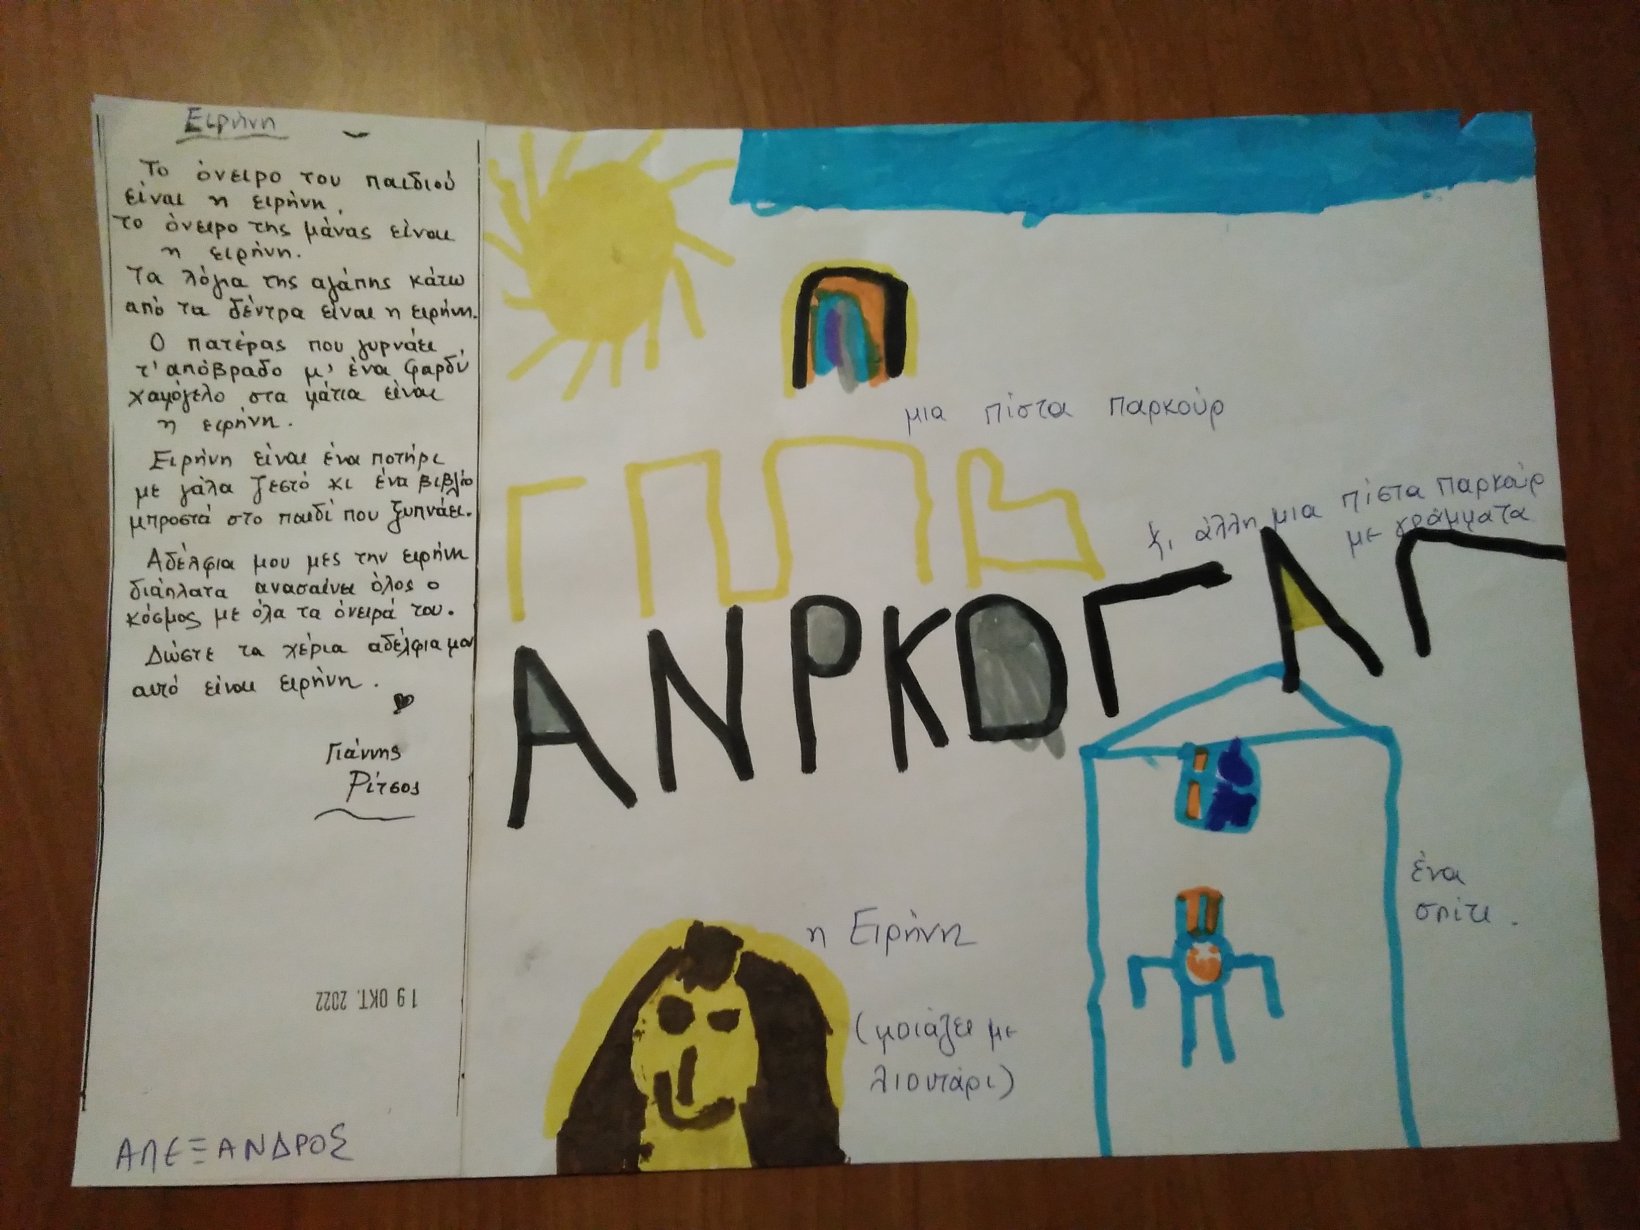 Ειρήνη
Το όνειρο του παιδιού
είναι η ειρήνη,
το όνειρο της μάνας είναι
η ειρήνη.
Τα λόγια της αγάπης κάτω
από τα δέντρα είναι η ειρήνη.
Ο πατέρας που γυρνάει
τ' απόβραδο μ' ένα φαρδύ
χαμόγελο στα μάτια είναι
η ειρήνη.
Ειρήνη είναι ένα ποτήρι
με γάλα ζεστό κι ένα βιβλίο
μπροστά στο παιδί που ξυπνάει.
Αδέλφια μου μες την ειρήνη
διάπλατα ανασαίνει όλος ο
κόσμος με όλα τα όνειρά του.
Δώστε τα χέρια αδέλφια μου
αυτό είναι ειρήνη.
Γιάννης
Ρίτσος
19 ΟΚΤ. 2022
ΑΛΕΞΑΝΔΡΟΣ
μια πίστα παρκούρ
κι άλλη μια πίστα παρκούρ
με γράμματα
ΑΝΡΚΟΓΑΓ
ένα
σπίτι.
η Ειρήνη
(μοιάζει με
λιοντάρι)